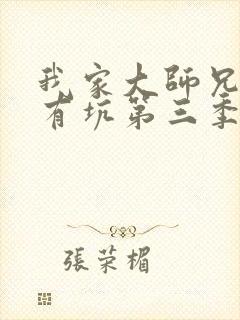 我家大師兄
有坑第三季
張荣楣